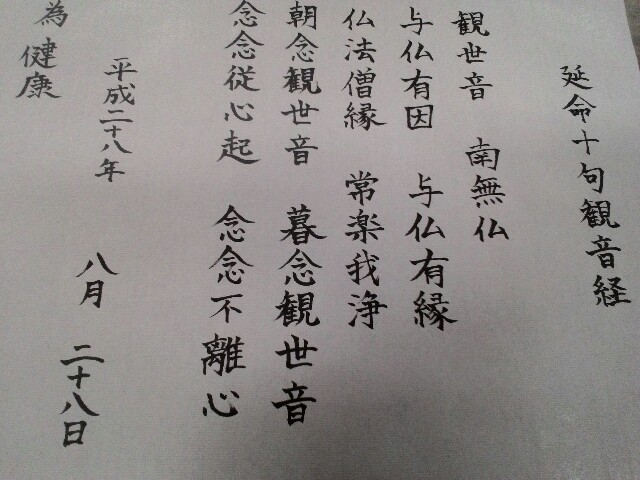 延命十句観音経
観世音 南無仏
与仏有因 与仏有縁
仏法僧縁 常楽我浄
朝念観世音 暮念観世音
念念従心起 念念不離心
平成二十八年 八月 二十八日
為健康